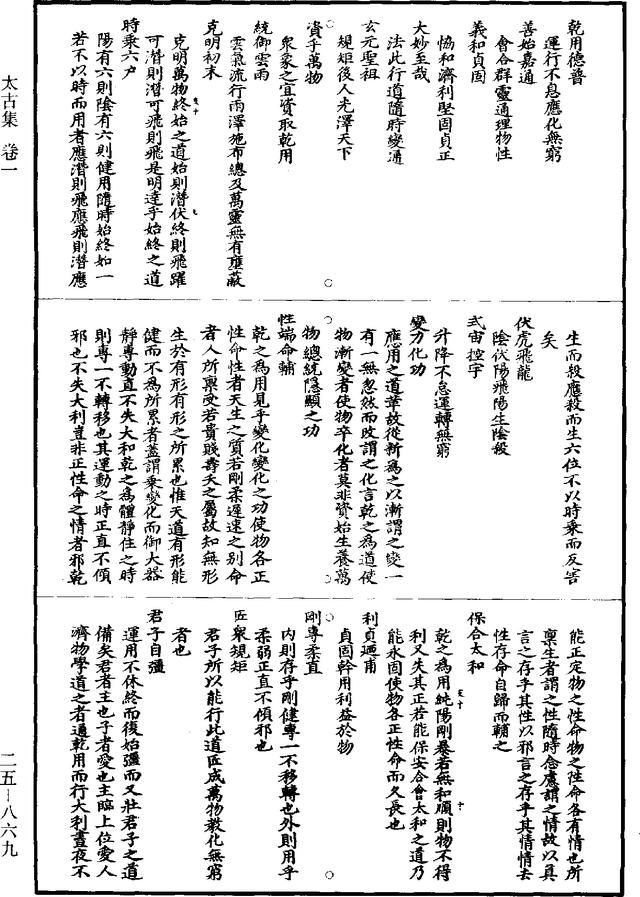 太古集　卷一
乾用德普
運行不息應化無窮
善始嘉通
會合群靈通理物性
義和貞固
協和濟利堅固貞正
大妙至哉
法此行道隨時變通
玄元聖祖
規矩後人光澤天下
資乎萬物
衆象之宜資取乾用
統御雲雨
雲氣流行雨澤施布總及萬靈無有壅蔽
克明初末
克明萬物終始之道始則潛伏終則飛躍
可潛則潛可飛則飛是明達乎始終之道
時乘六户
陽有六則陰有六則健用隨時始終如一
若不以時而用者應潛則飛應飛則潛應
生而殺應殺而生六位不以時乘而反害
矣
伏虎飛龍
陰伏陽飛陽生陰殺
式宙控宇
升降不息運轉無窮
變力化功
應用之道革故從新為之以漸謂之變一
有一無忽然而改謂之化言乾之為道使
物漸變者使物卒化者莫非資始生養萬
物總統隱顯之功
性端命輔
乾之為用見乎變化變化之功使物各正
性命性者天生之質若剛柔遲速之別命
者人所禀受若貴賤壽夭之屬故知無形
生於有形有形之所累也惟天道有形能
健而不為所累者蓋謂乘變化而御大器
靜專動直不失大和乾之為體靜住之時
則專一不轉移也其運動之時正直不傾
邪也不失大利豈非正性命之情者邪乾
能正定物之性命物之性命各有情也所
禀生者謂之性隨時念慮謂之情故以真
言之存乎其性以邪言之存乎其情情去
性存命自歸而輔之
保合太和
乾之為用純陽剛暴若無和順則物不得
利又失其正若能保安合會太和之道乃
能永固使物各正性命而久長也
利貞迺甫
貞固幹用利益於物
剛專柔直
内則存乎剛健專一不移轉也外則用乎
柔弱正直不傾邪也
匠衆規矩
君子所以能行此道匠成萬物教化無窮
者也
君子自彊
運用不休終而後始彊而又壯君子之道
備矣君者主也子者愛也主臨上位愛人
濟物學道之者通乾用而行大利晝夜不
二五—八六九